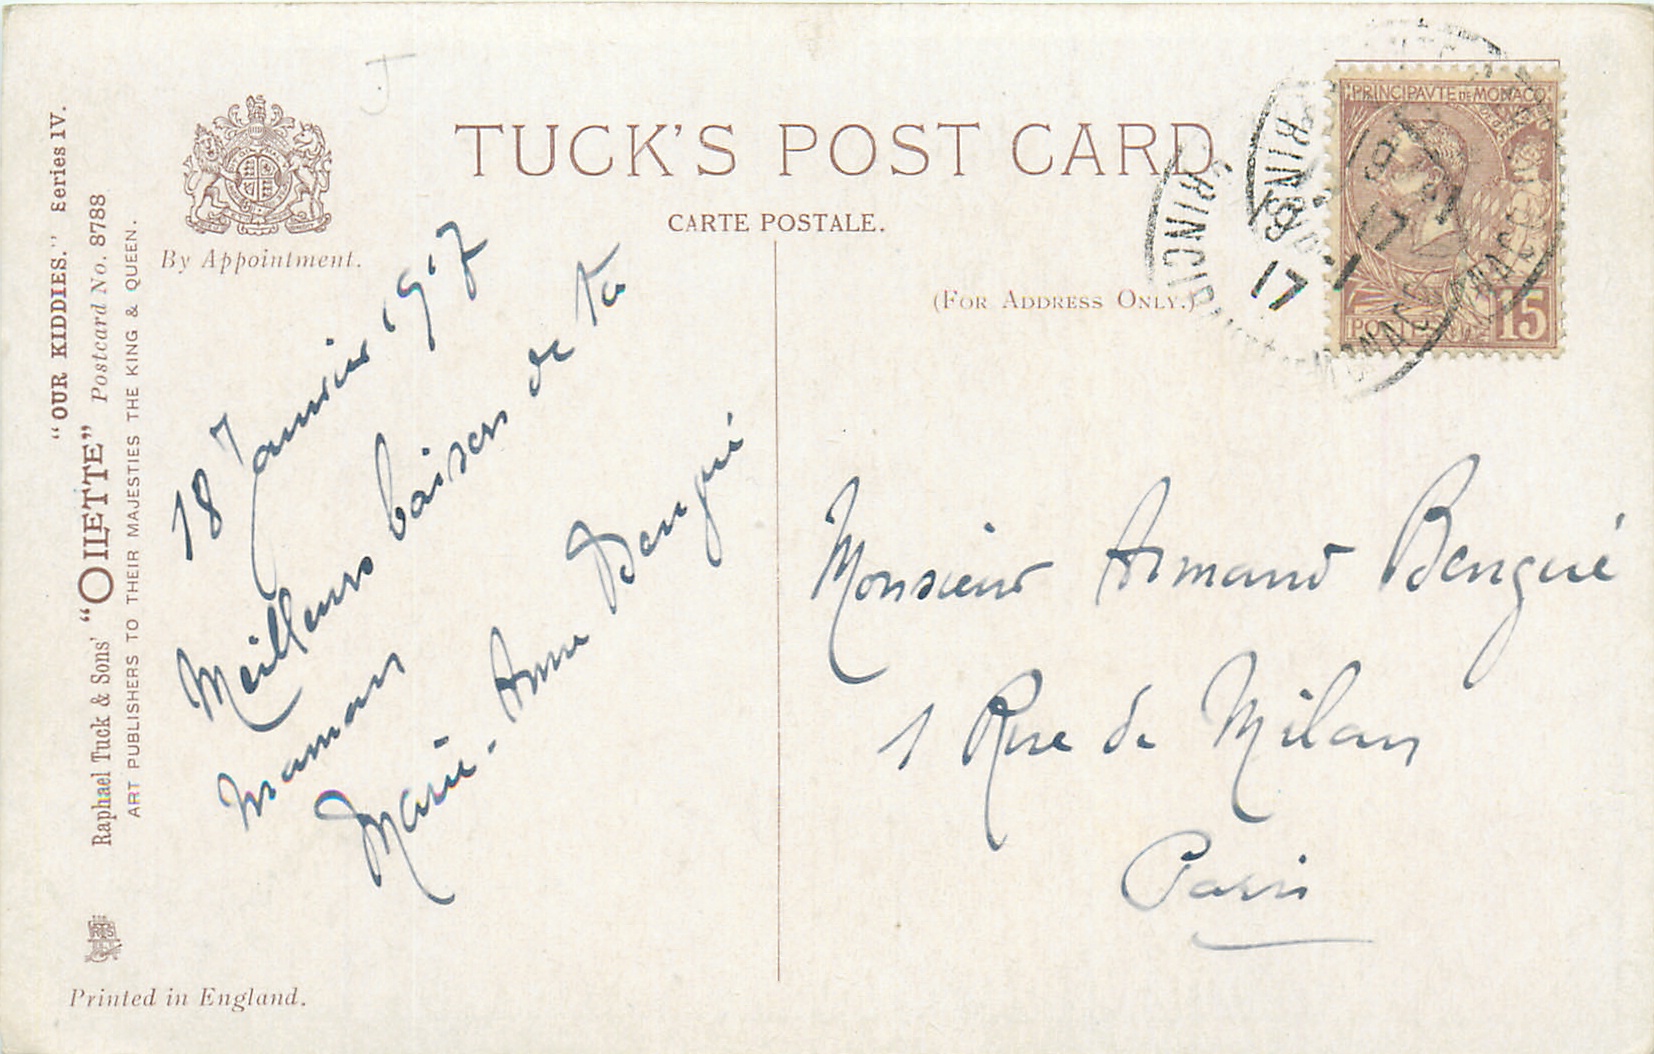 TUCK'S POST CARD
CARTE POSTALE.
By Appointment.
(FOR ADDRESS ONLY.)
"OUR KIDDIES." Series IV.
Raphael Tuck & Sons' "OILETTE" Postcard No. 8788
ART PUBLISHERS TO THEIR MAJESTIES THE KING & QUEEN.
Printed in England.
18 Janvier 1917
Meilleurs baisers de ta
maman
Marie-Anne Bengué
PRINCIPAVTE DE MONACO
15
17
17
Monsieur Armand Bengué
1 Rue de Milan
Paris